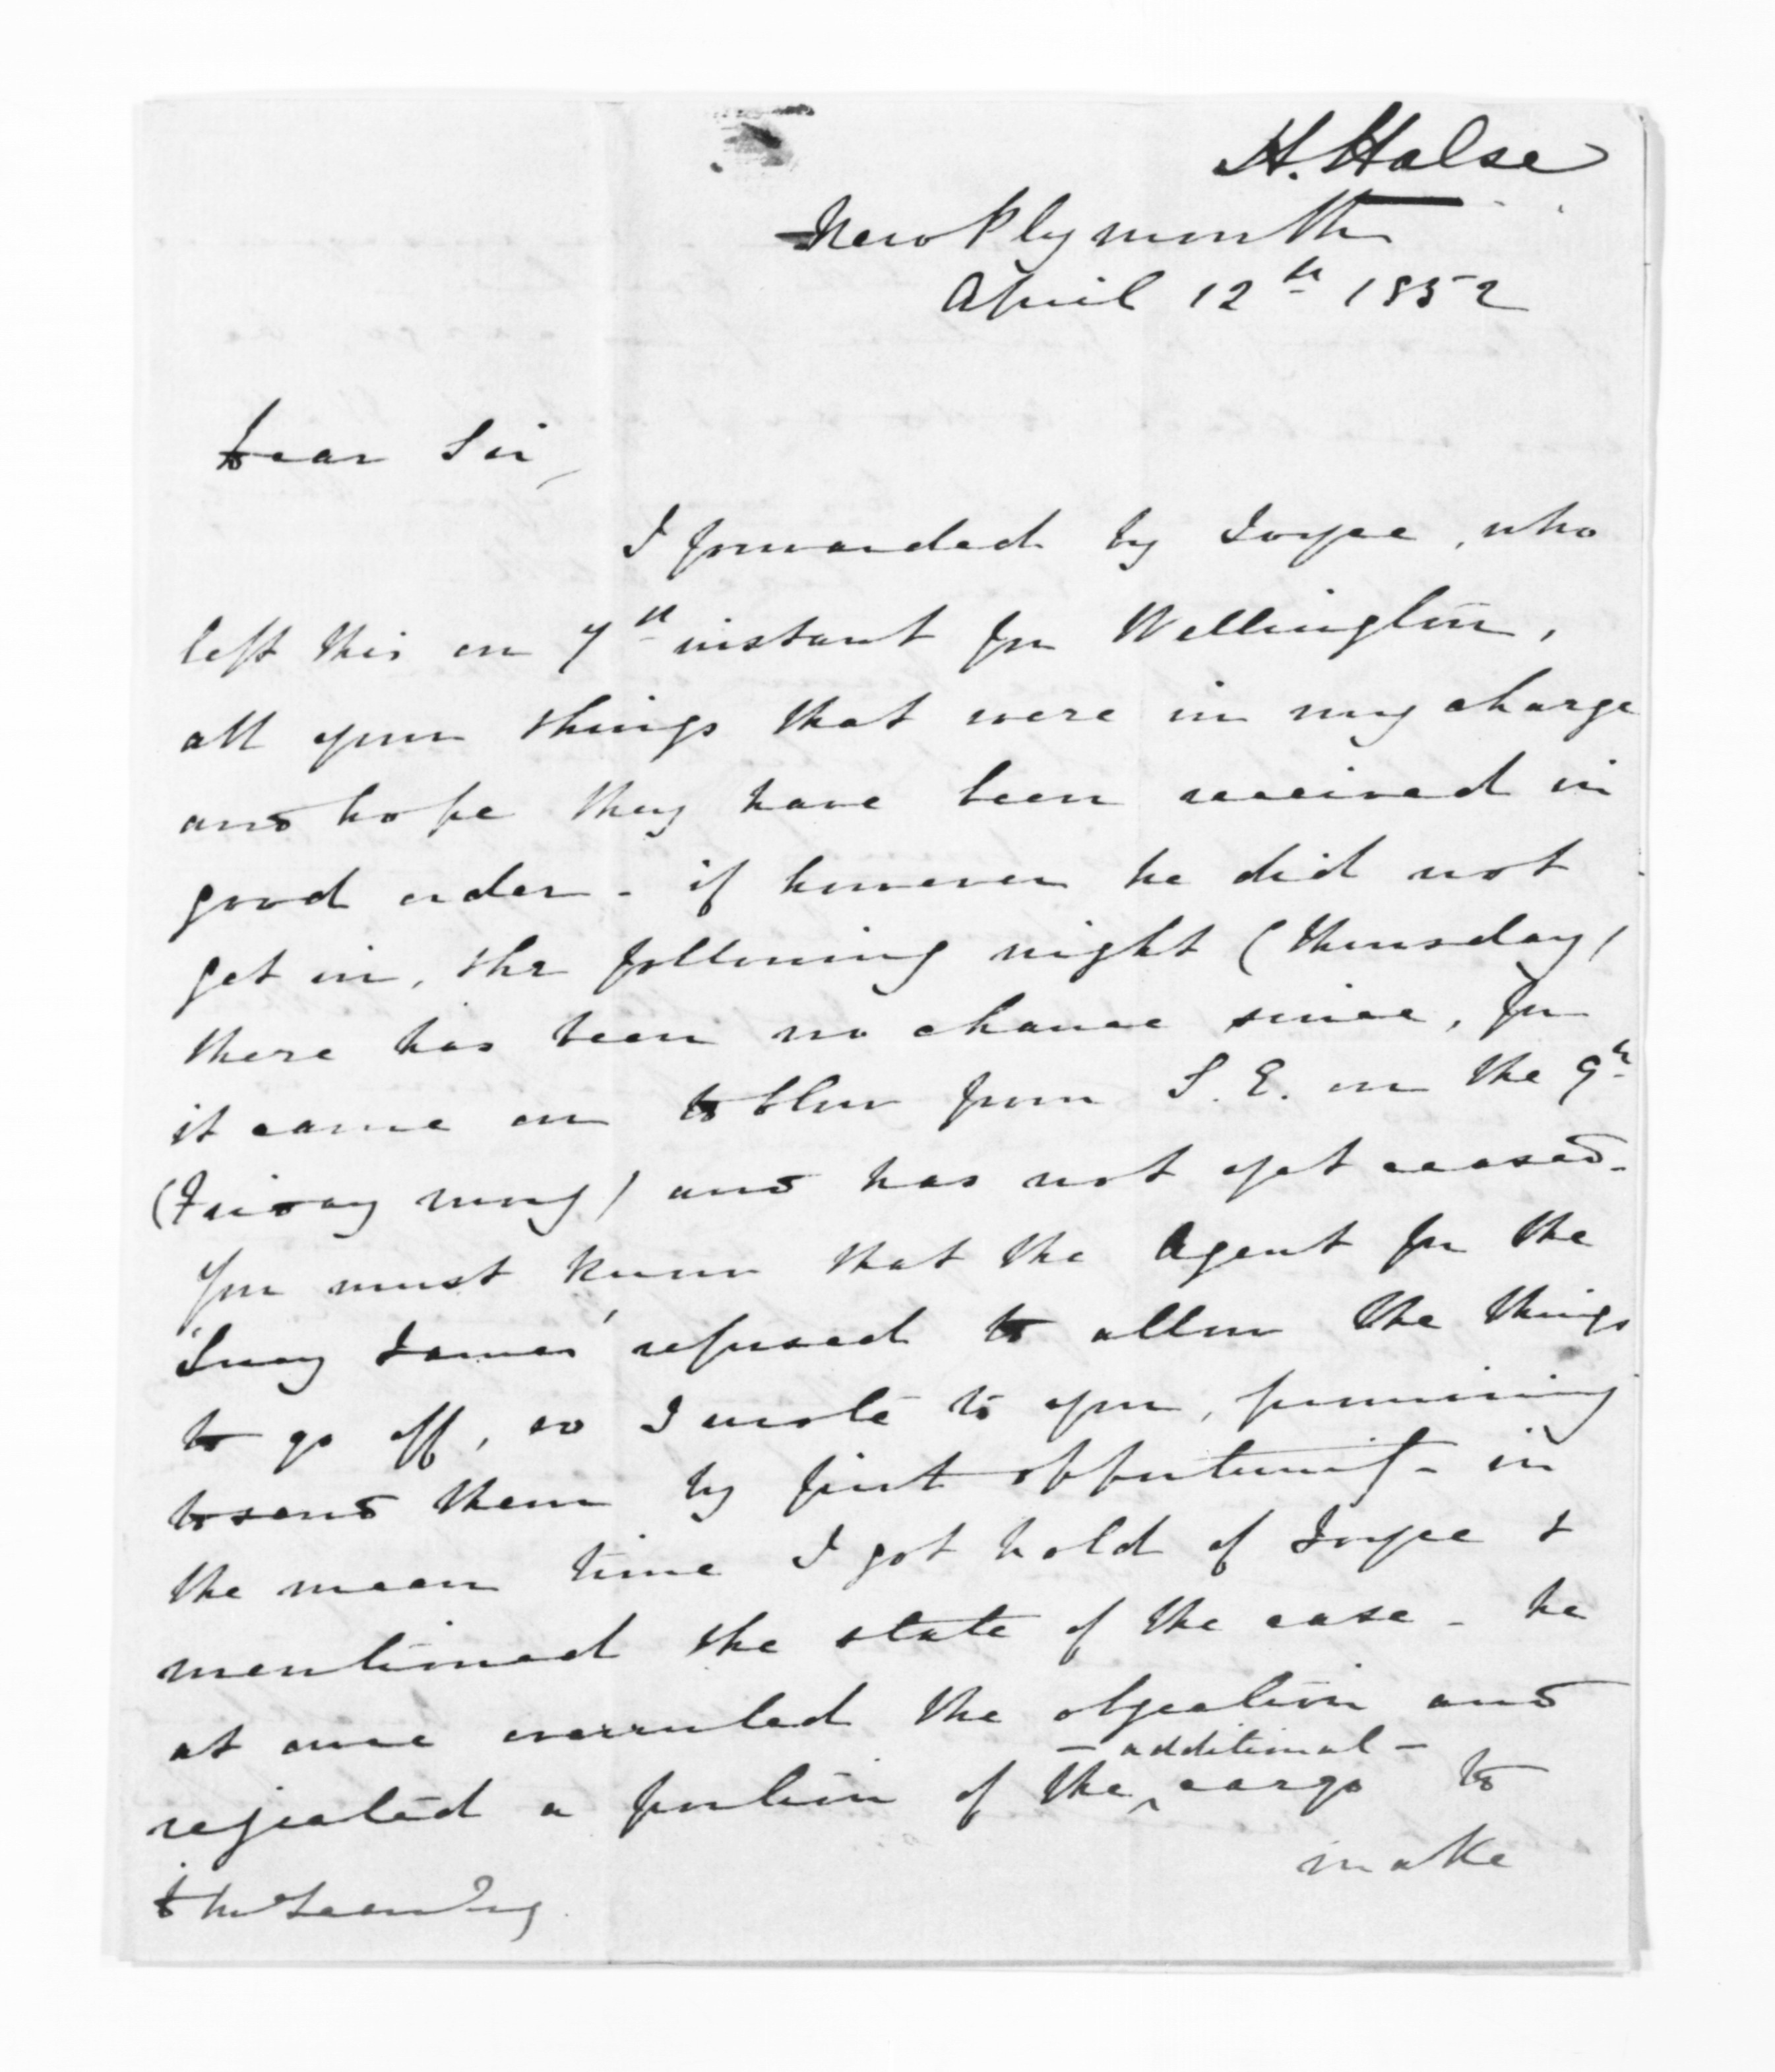 H. Halse
New Plymouth
April 12th 1852
Dear Sir,
I forwarded by Joyce, who
left this on 7th instant for Wellington,
all your things that were in my charge
and hope they have been received in
good order - if however he did not
get in, the following night (Thursday)
there has been no chance since, for
it came on to blow from S. E. on the 9th
(Friday mng) and has not yet ceased.
You must know that the Agent for the
'Lucy James' refused to allow the things
to go off, so I wrote to you, promising
to send them by first opportunity - in
the mean time I got hold of Joyce &
mentioned the state of the case - he
at once overruled the objection and
rejected a portion of the additional cargo to
make